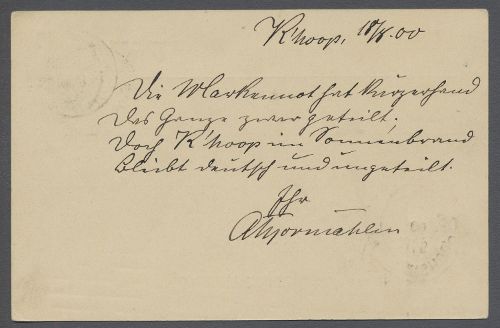 K'hoop, 18/8.00
Die Markennot hat kurzerhand
das Ganze zwar geteilt,
Doch K'hoop im Sonnenbrand
bleibt deutsch und ungeteilt.
Ihr